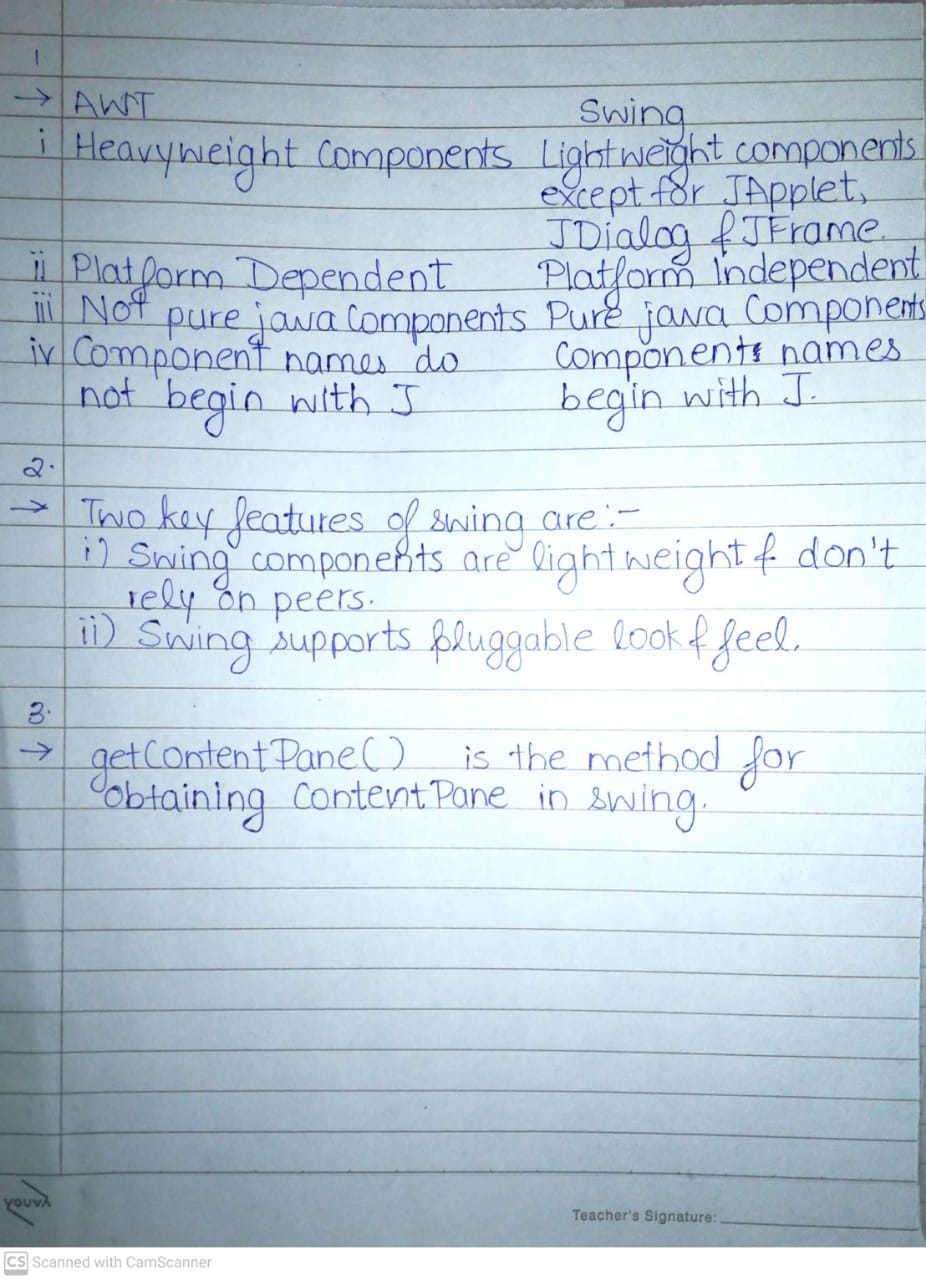 1.
→ AWT Swing
i Heavyweight Components Lightweight components
except for JApplet,
JDialog & JFrame.
ii Platform Dependent Platform independent
iii Not pure java Components Pure java Components
iv Component names do Components names
not begin with J begin with J.
2.
→ Two key features of swing are :-
i) Swing components are lightweight & don't
rely on peers.
ii) Swing supports pluggable look & feel.
3.
→ getContentPane() is the method for
obtaining ContentPane in swing.
youva
Teacher's Signature:
CS Scanned with CamScanner